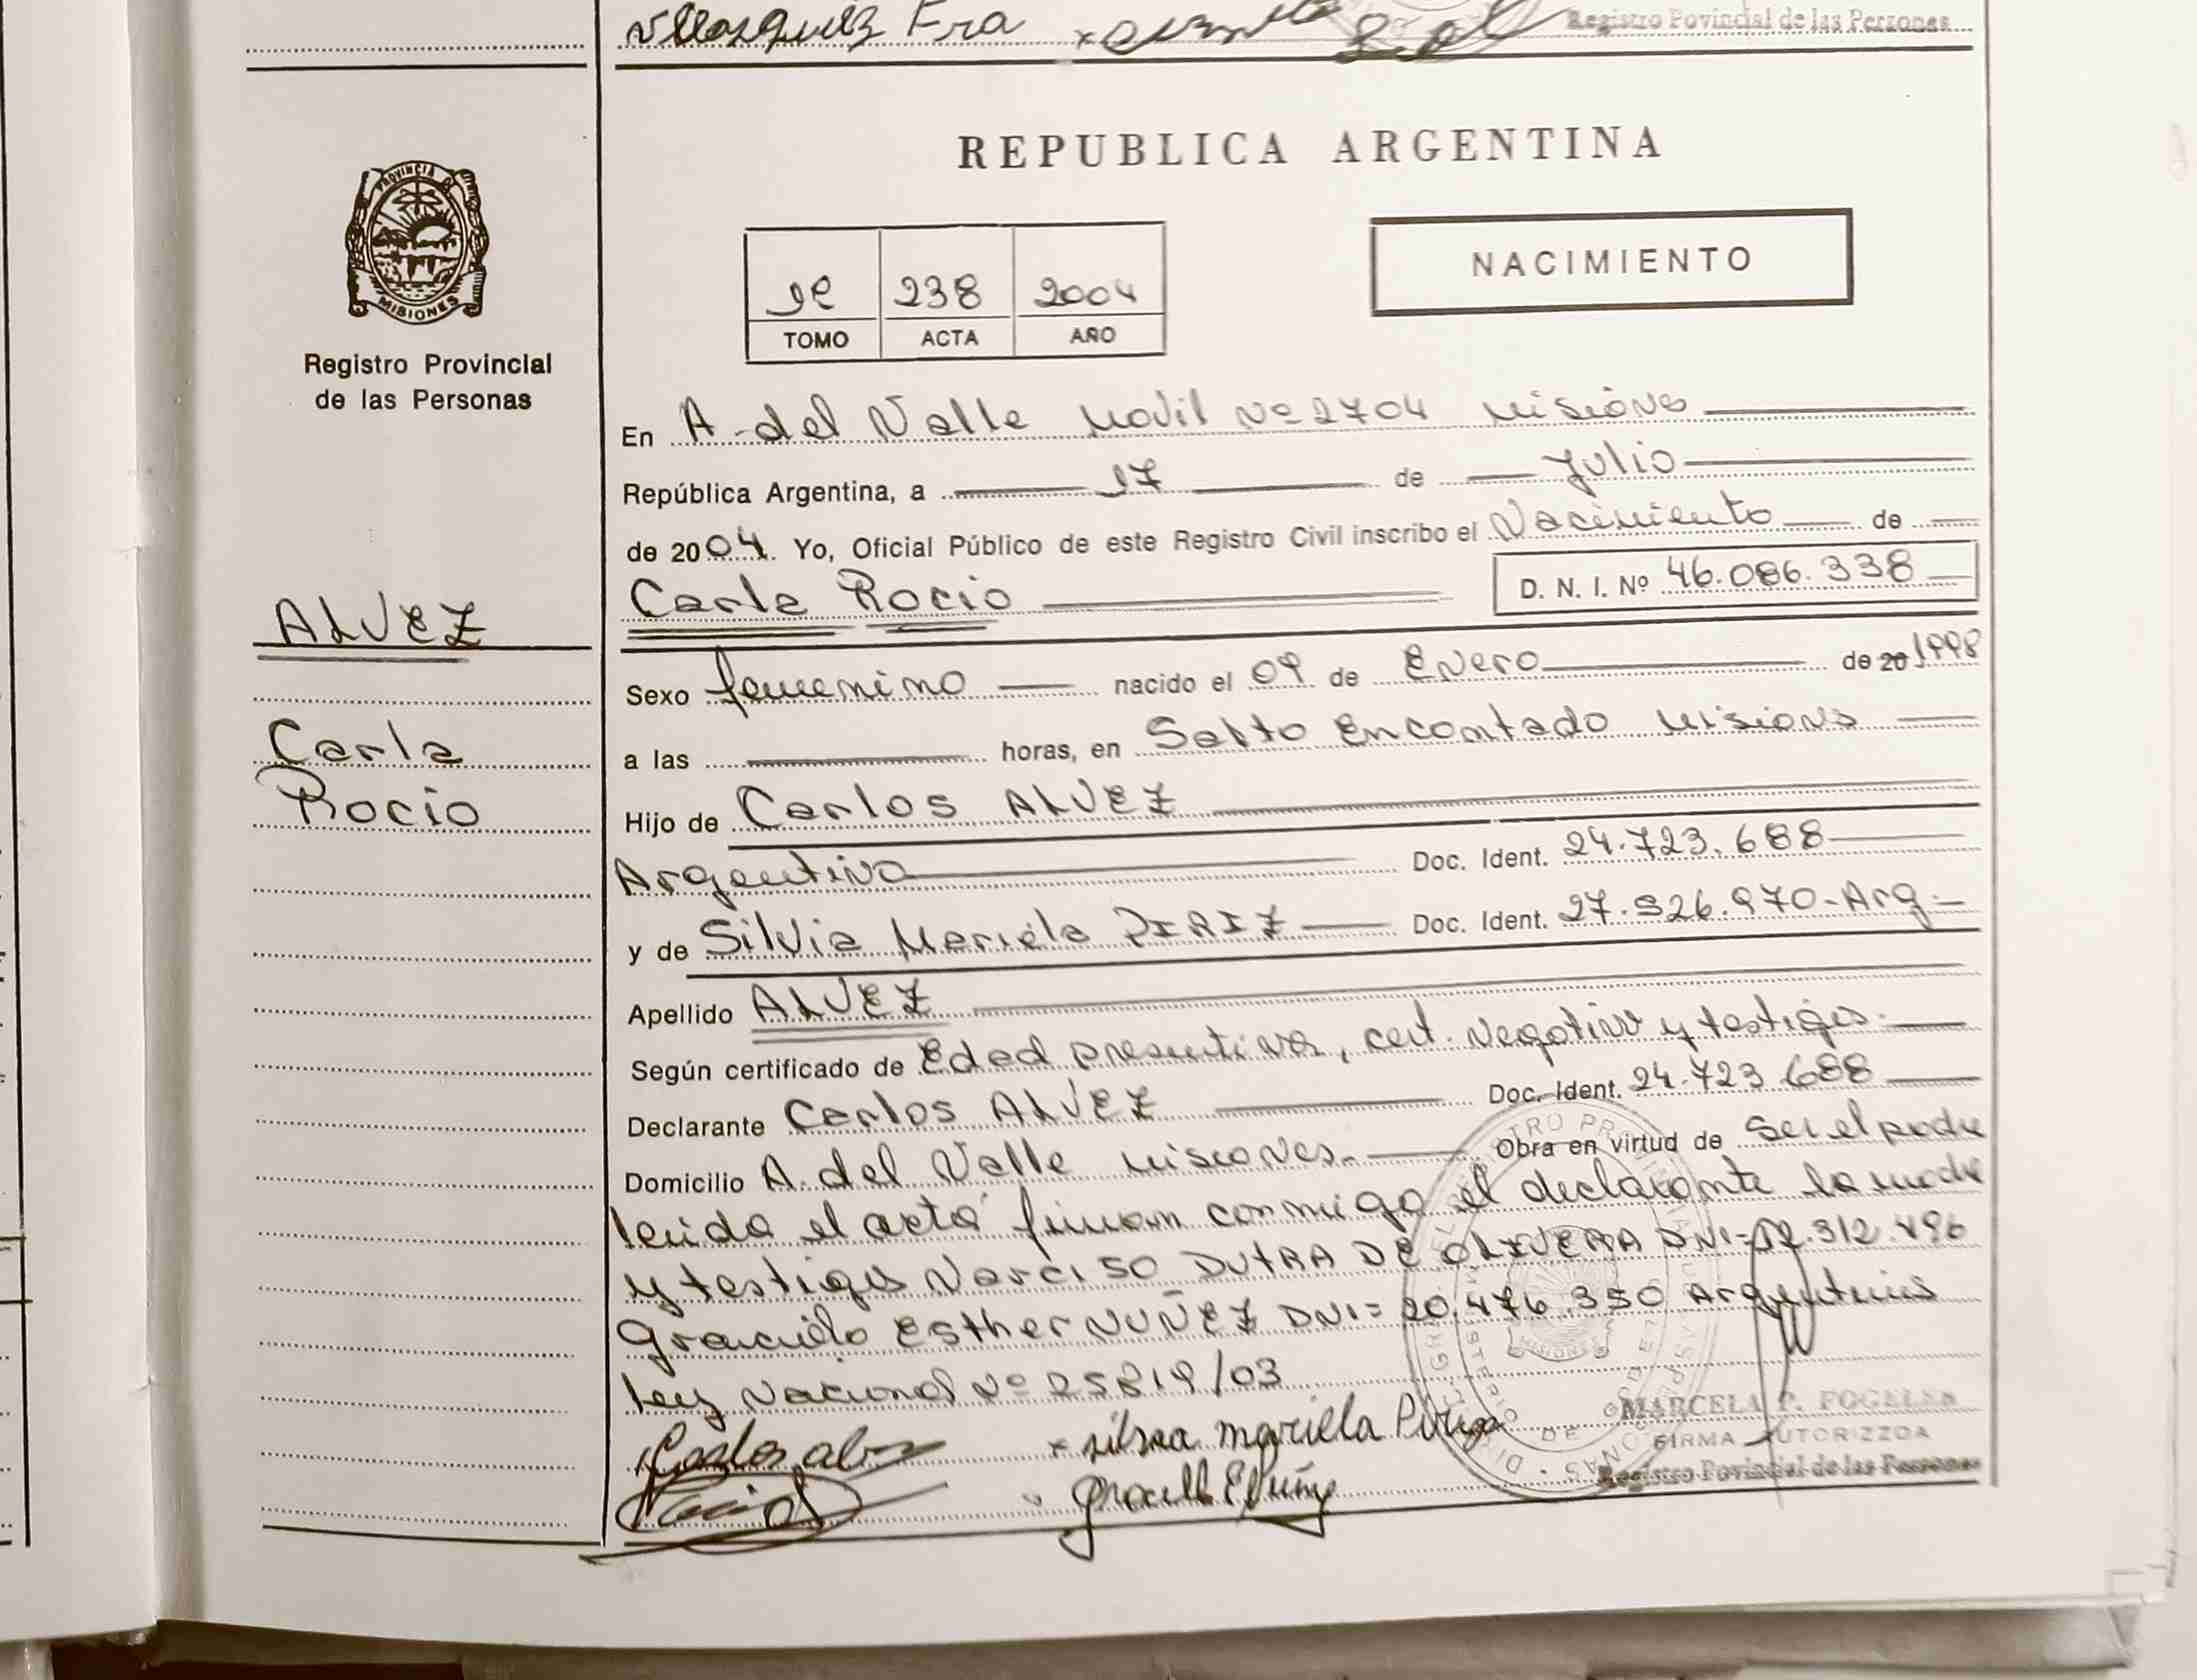 Registro Povincial de las Perzones
PROVINCIA DE
MISIONES
Registro Provincial
de las Personas
REPUBLICA ARGENTINA
NACIMIENTO
1º 238 2004
TOMO ACTA AÑO
En A. del Valle Movil Nº 2704 Misiones
República Argentina, a 17 de Julio
de 2004. Yo, Oficial Público de este Registro Civil inscribo el Nacimiento de
Carla Rocio D. N. I. Nº 46.086.338
ALVEZ
Carla
Rocio
Sexo femenino nacido el 09 de Enero de 20 1998
a las horas, en Salto Encantado Misiones
Hijo de Carlos ALVEZ
Argentino Doc. Ident. 24.723.688
y de Silvia Mariela PIRIZ Doc. Ident. 27.526.970-Arg-
Apellido ALVEZ
Según certificado de Edad presuntiva, cert. Negativo y testigos.
Declarante Carlos ALVEZ Doc. Ident. 24.723.688
Domicilio A. del Valle Misiones. Obra en virtud de Ser el padre
leida el acta firman conmigo el declarante la madre
y testigos Narciso DUTRA DE OLIVERA DNI= 312.496
Graciela Esther NUÑEZ DNI= 20.476.350 Argentinos
Ley Nacional Nº 25819/03
MARCELA P. FOGELER
FIRMA AUTORIZZDA
Registro Povincial de las Personas
Carlos alvez x silvia mariela Piriz